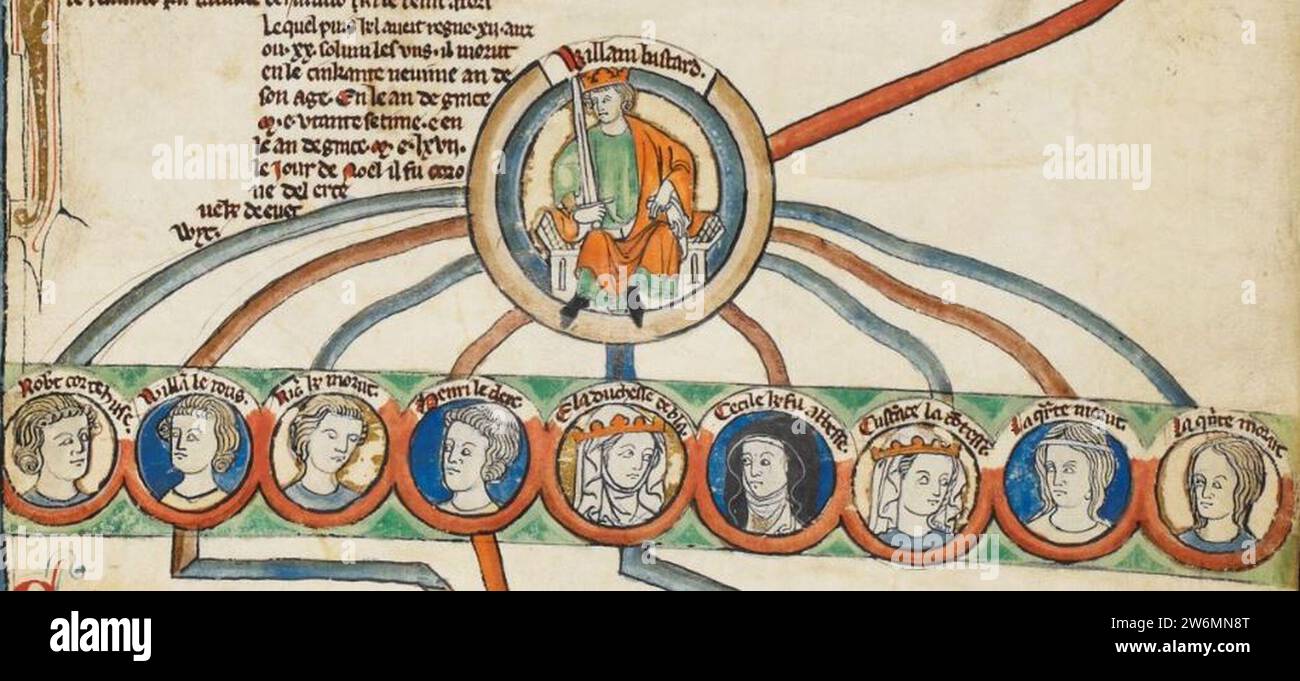 Le quel puis kil aueit regne .xx. anz
ou .xx. solum les vns . il morut
en le cinkante neuuime an de
son age . En le an de grace
e vtante setime . e en
le an de grace . e . lxvij .
le Jour de Noel il fu coro
ne del erce
ueske de euer
wyc.
Willam bastard.
Robt corte huse.
Willā le rous.
Ric̄ ke morut.
Henri le clerc
la duchesse de blais
Cecile ke fu abbesse.
Custance la cōtesse
la q̄rte morut.
la q̄nte morut
alamy
Image ID: 2W6MN8T
www.alamy.com